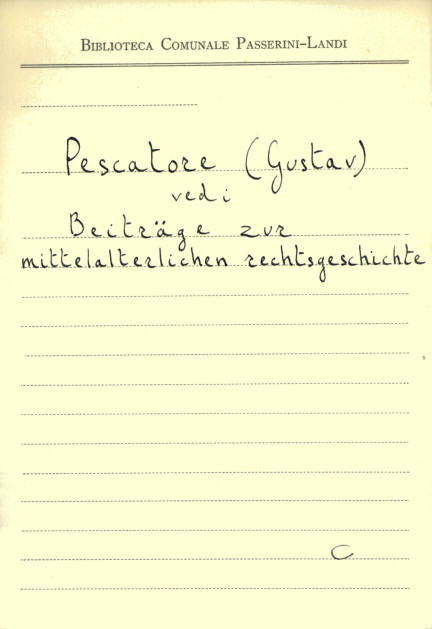 BIBLIOTECA COMUNALE PASSERINI-LANDI
Pescatore (Gustav)
vedi
Beiträge zur
mittelalterlichen rechtsgeschichte
C